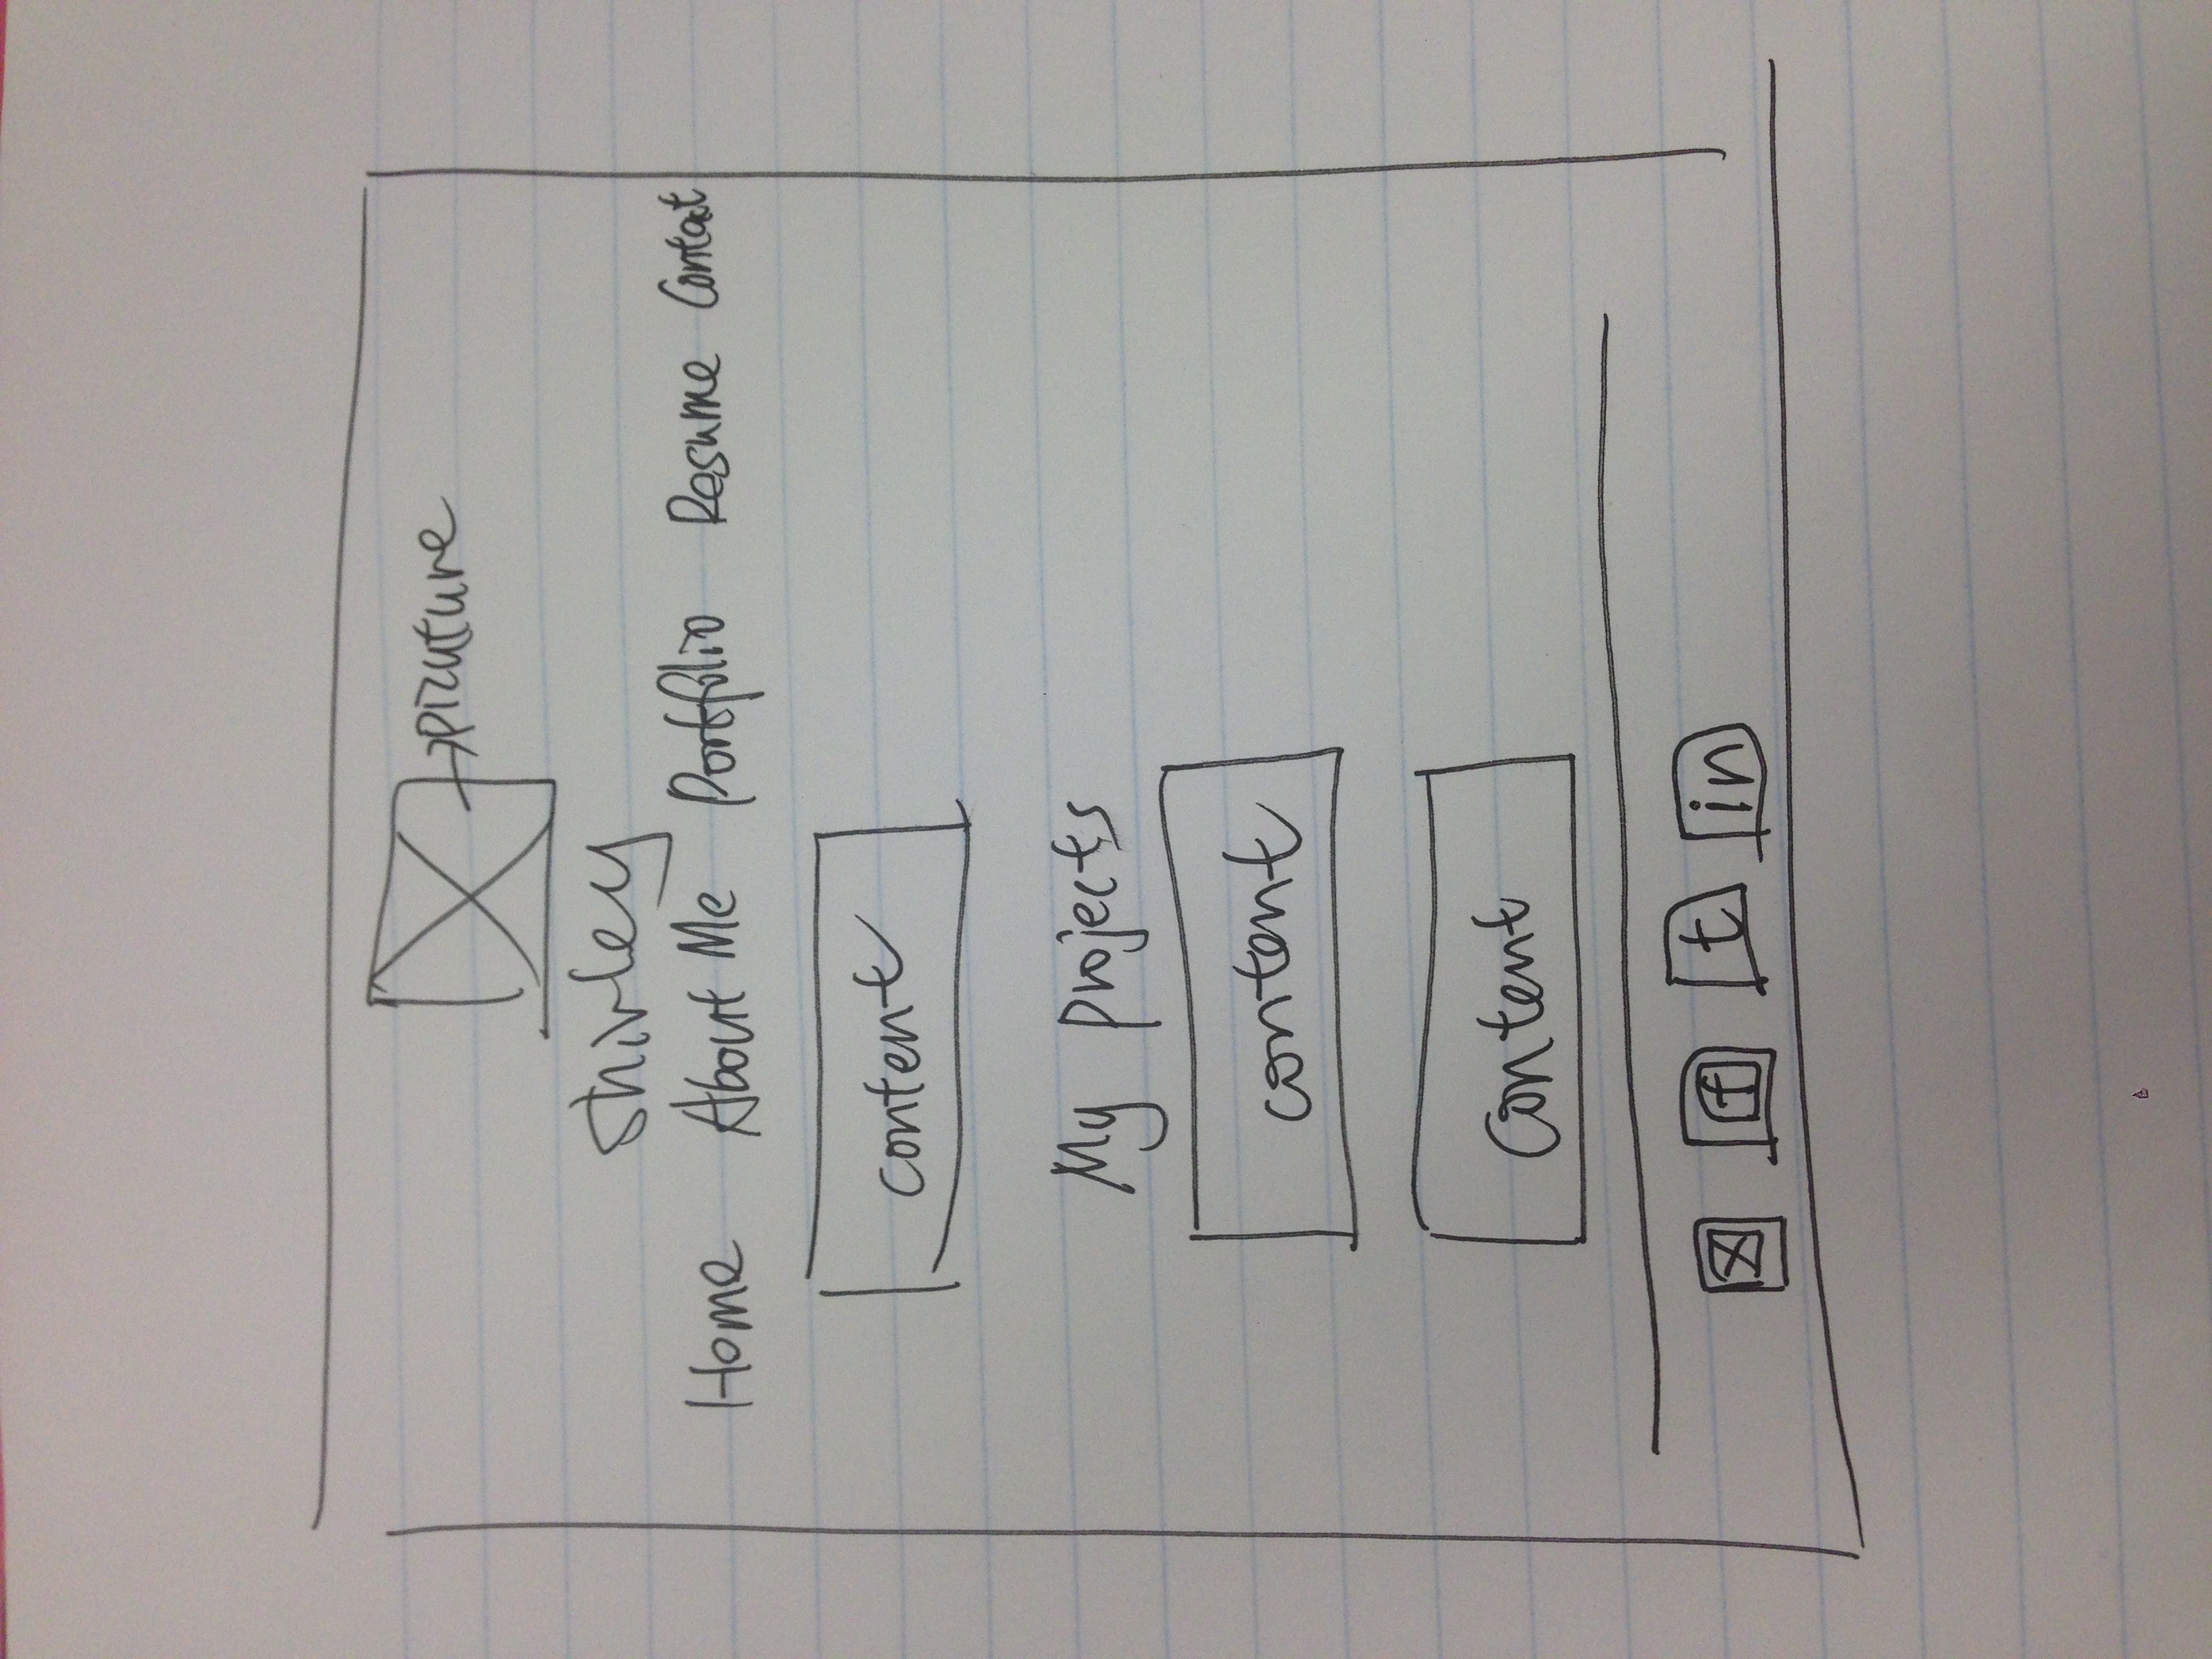 picuture
Shirley
Home About Me Portfolio Resume Contact
content
My projects
content
Content
f t in